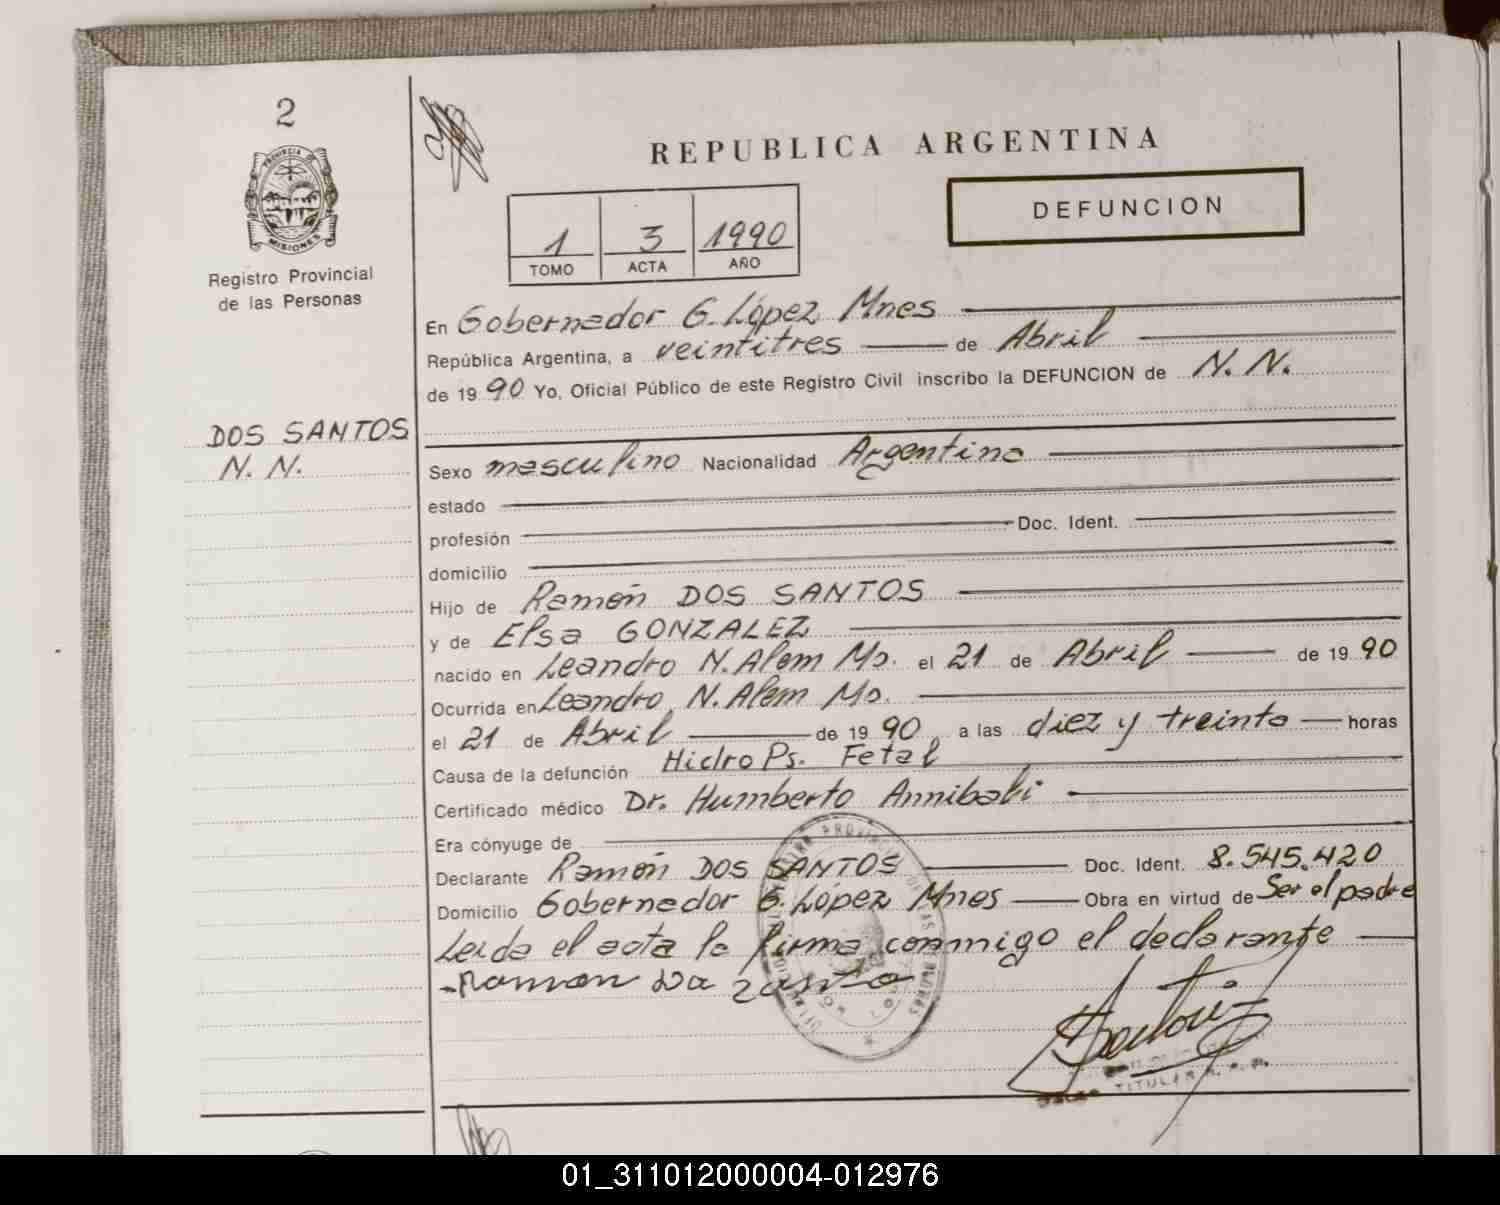 2
PROVINCIA DE
MISIONES
Registro Provincial
de las Personas
DOS SANTOS
N. N.
REPUBLICA ARGENTINA
DEFUNCION
1 3 1990
TOMO ACTA AÑO
En Gobernador G. López Mnes
República Argentina, a veintitres de Abril
de 1990 Yo, Oficial Público de este Registro Civil inscribo la DEFUNCION de N. N.
Sexo masculino Nacionalidad Argentina
estado
profesión Doc. Ident.
domicilio
Hijo de Ramón DOS SANTOS
y de Elsa GONZALEZ
nacido en Leandro N. Alem Ms. el 21 de Abril de 1990
Ocurrida en Leandro N. Alem Ms.
el 21 de Abril de 1990 a las diez y treinta horas
Causa de la defunción Hidro Ps. Fetal
Certificado médico Dr. Humberto Annibali
Era cónyuge de
Declarante Ramón DOS SANTOS Doc. Ident. 8.545.420
Domicilio Gobernador G. López Mnes Obra en virtud de Ser el padre
Leida el acta la firma conmigo el declarante
Ramon Da Santo
TITULAR
01_311012000004-012976